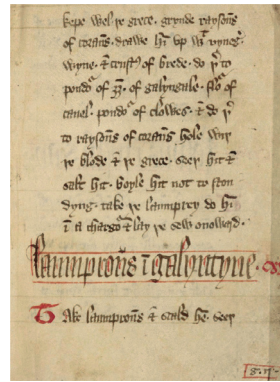 kepe wel þe grece. grynde raysons
of corans. drawe hem up wt vyneger
wyne. & crustes of brede. do þerto
poudor of gyngur. of galyngale. flor of
canel. poudor of clowes. & do þerto
to raysons of corans hole with
þe blode & þe grece. seeþ hit &
salt hit. boyle hit not to ston
dyng. take þe laumprey do him
in a chargor & lay þe sew onoward.
laumprons in galyntyne.
Take laumprons & scald hem. seeþ